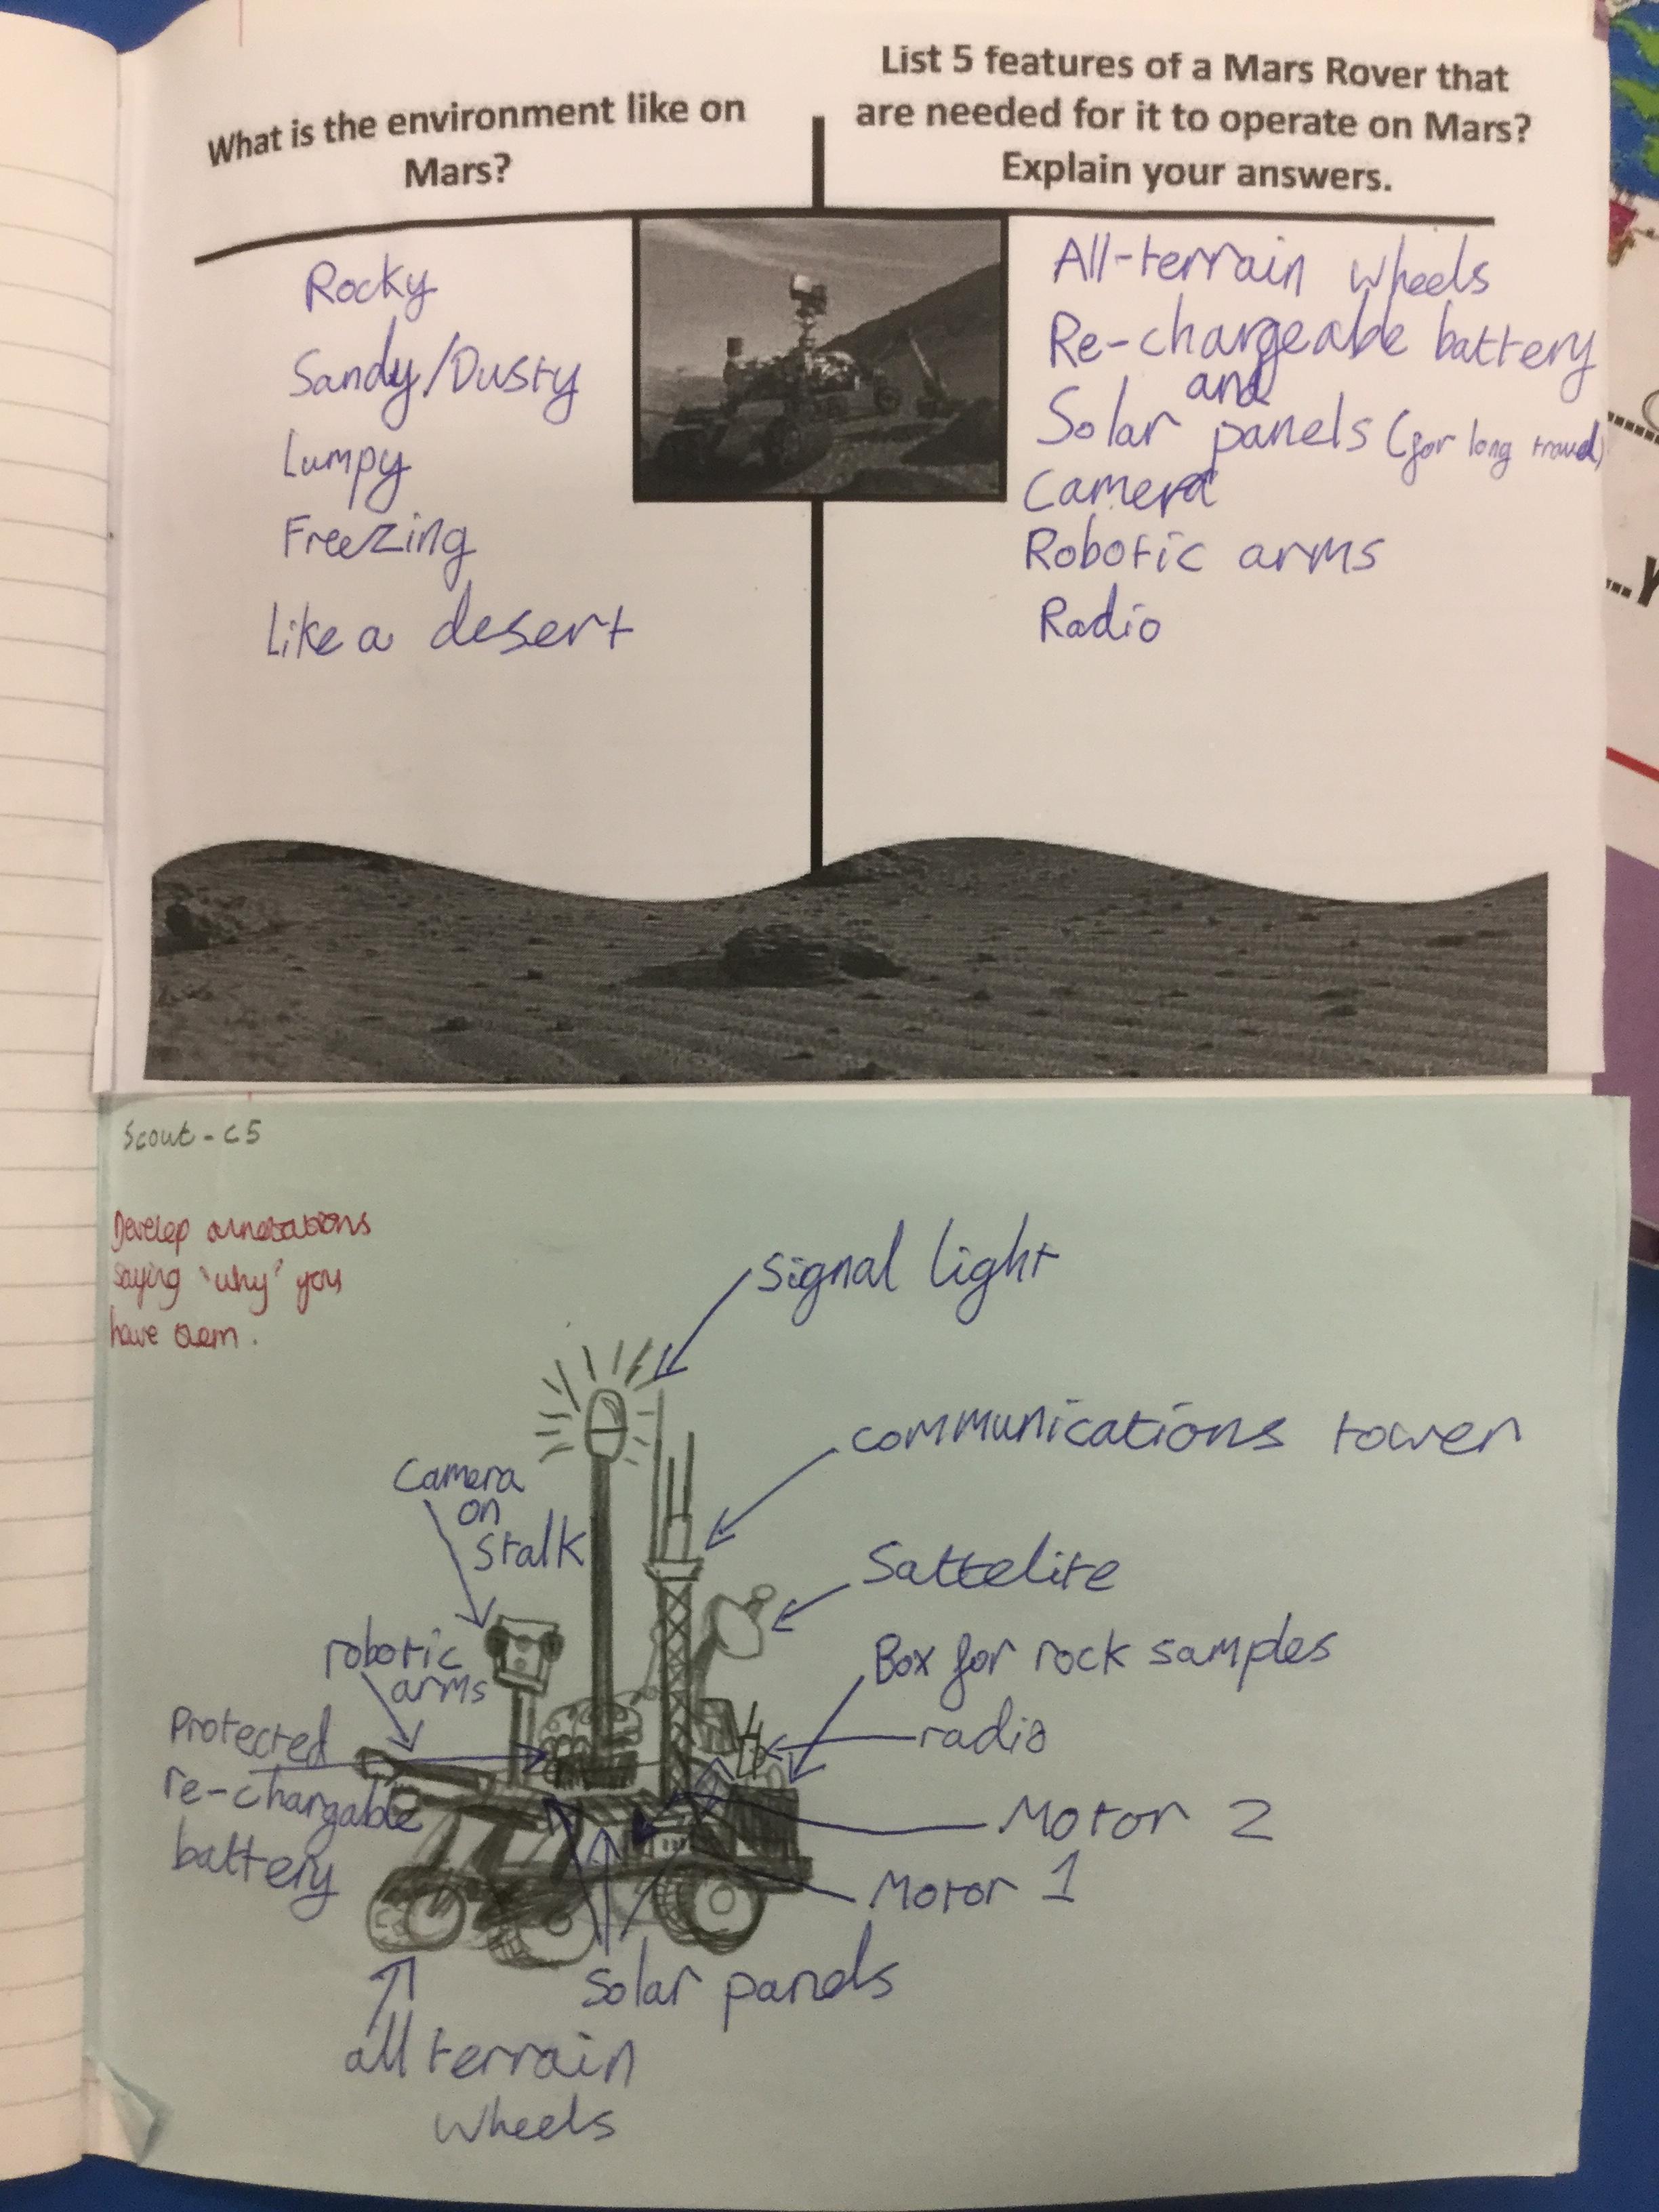 What is the environment like on
Mars?
List 5 features of a Mars Rover that
are needed for it to operate on Mars?
Explain your answers.
Rocky
Sandy/Dusty
Lumpy
Freezing
Like a desert
All-terrain wheels
Re-chargeable battery
and
Solar panels (for long travel)
Camera
Robotic arms
Radio
Scout - C5
Develop annotations
saying 'why' you
have them.
signal light
communications tower
Camera
on
stalk
Sattelite
robotic
arms
Box for rock samples
radio
Protected
re-chargable
battery
Motor 2
Motor 1
Solar panels
all terrain
wheels